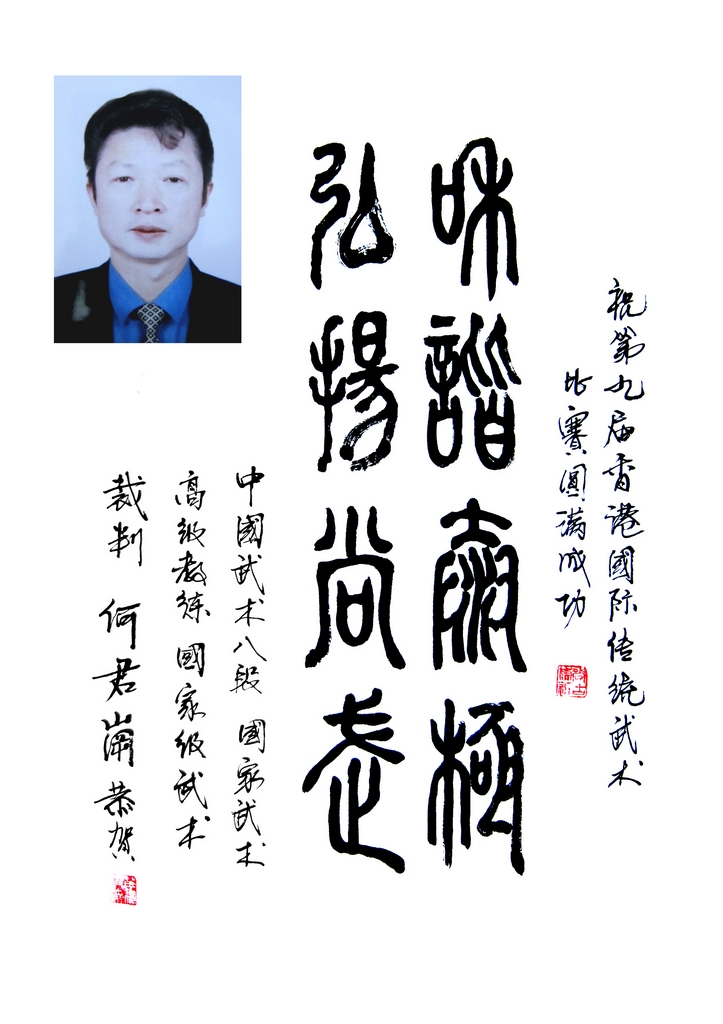 祝第九届香港國际传统武术
比賽圓满成功
和諧泰極
弘揚尚武
中國武术八段 國家武术
高级教练 國家级武术
裁判 何君 恭贺